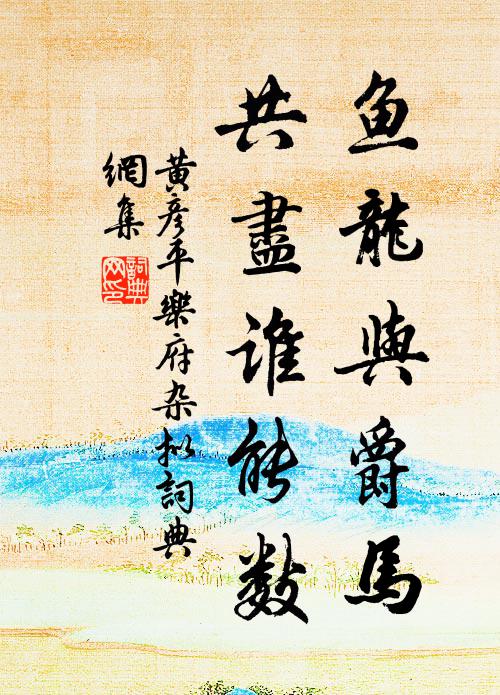 鱼龍與爵馬
共盡谁能数
黄彦平樂府杂拟詞典
網集
詞典网印